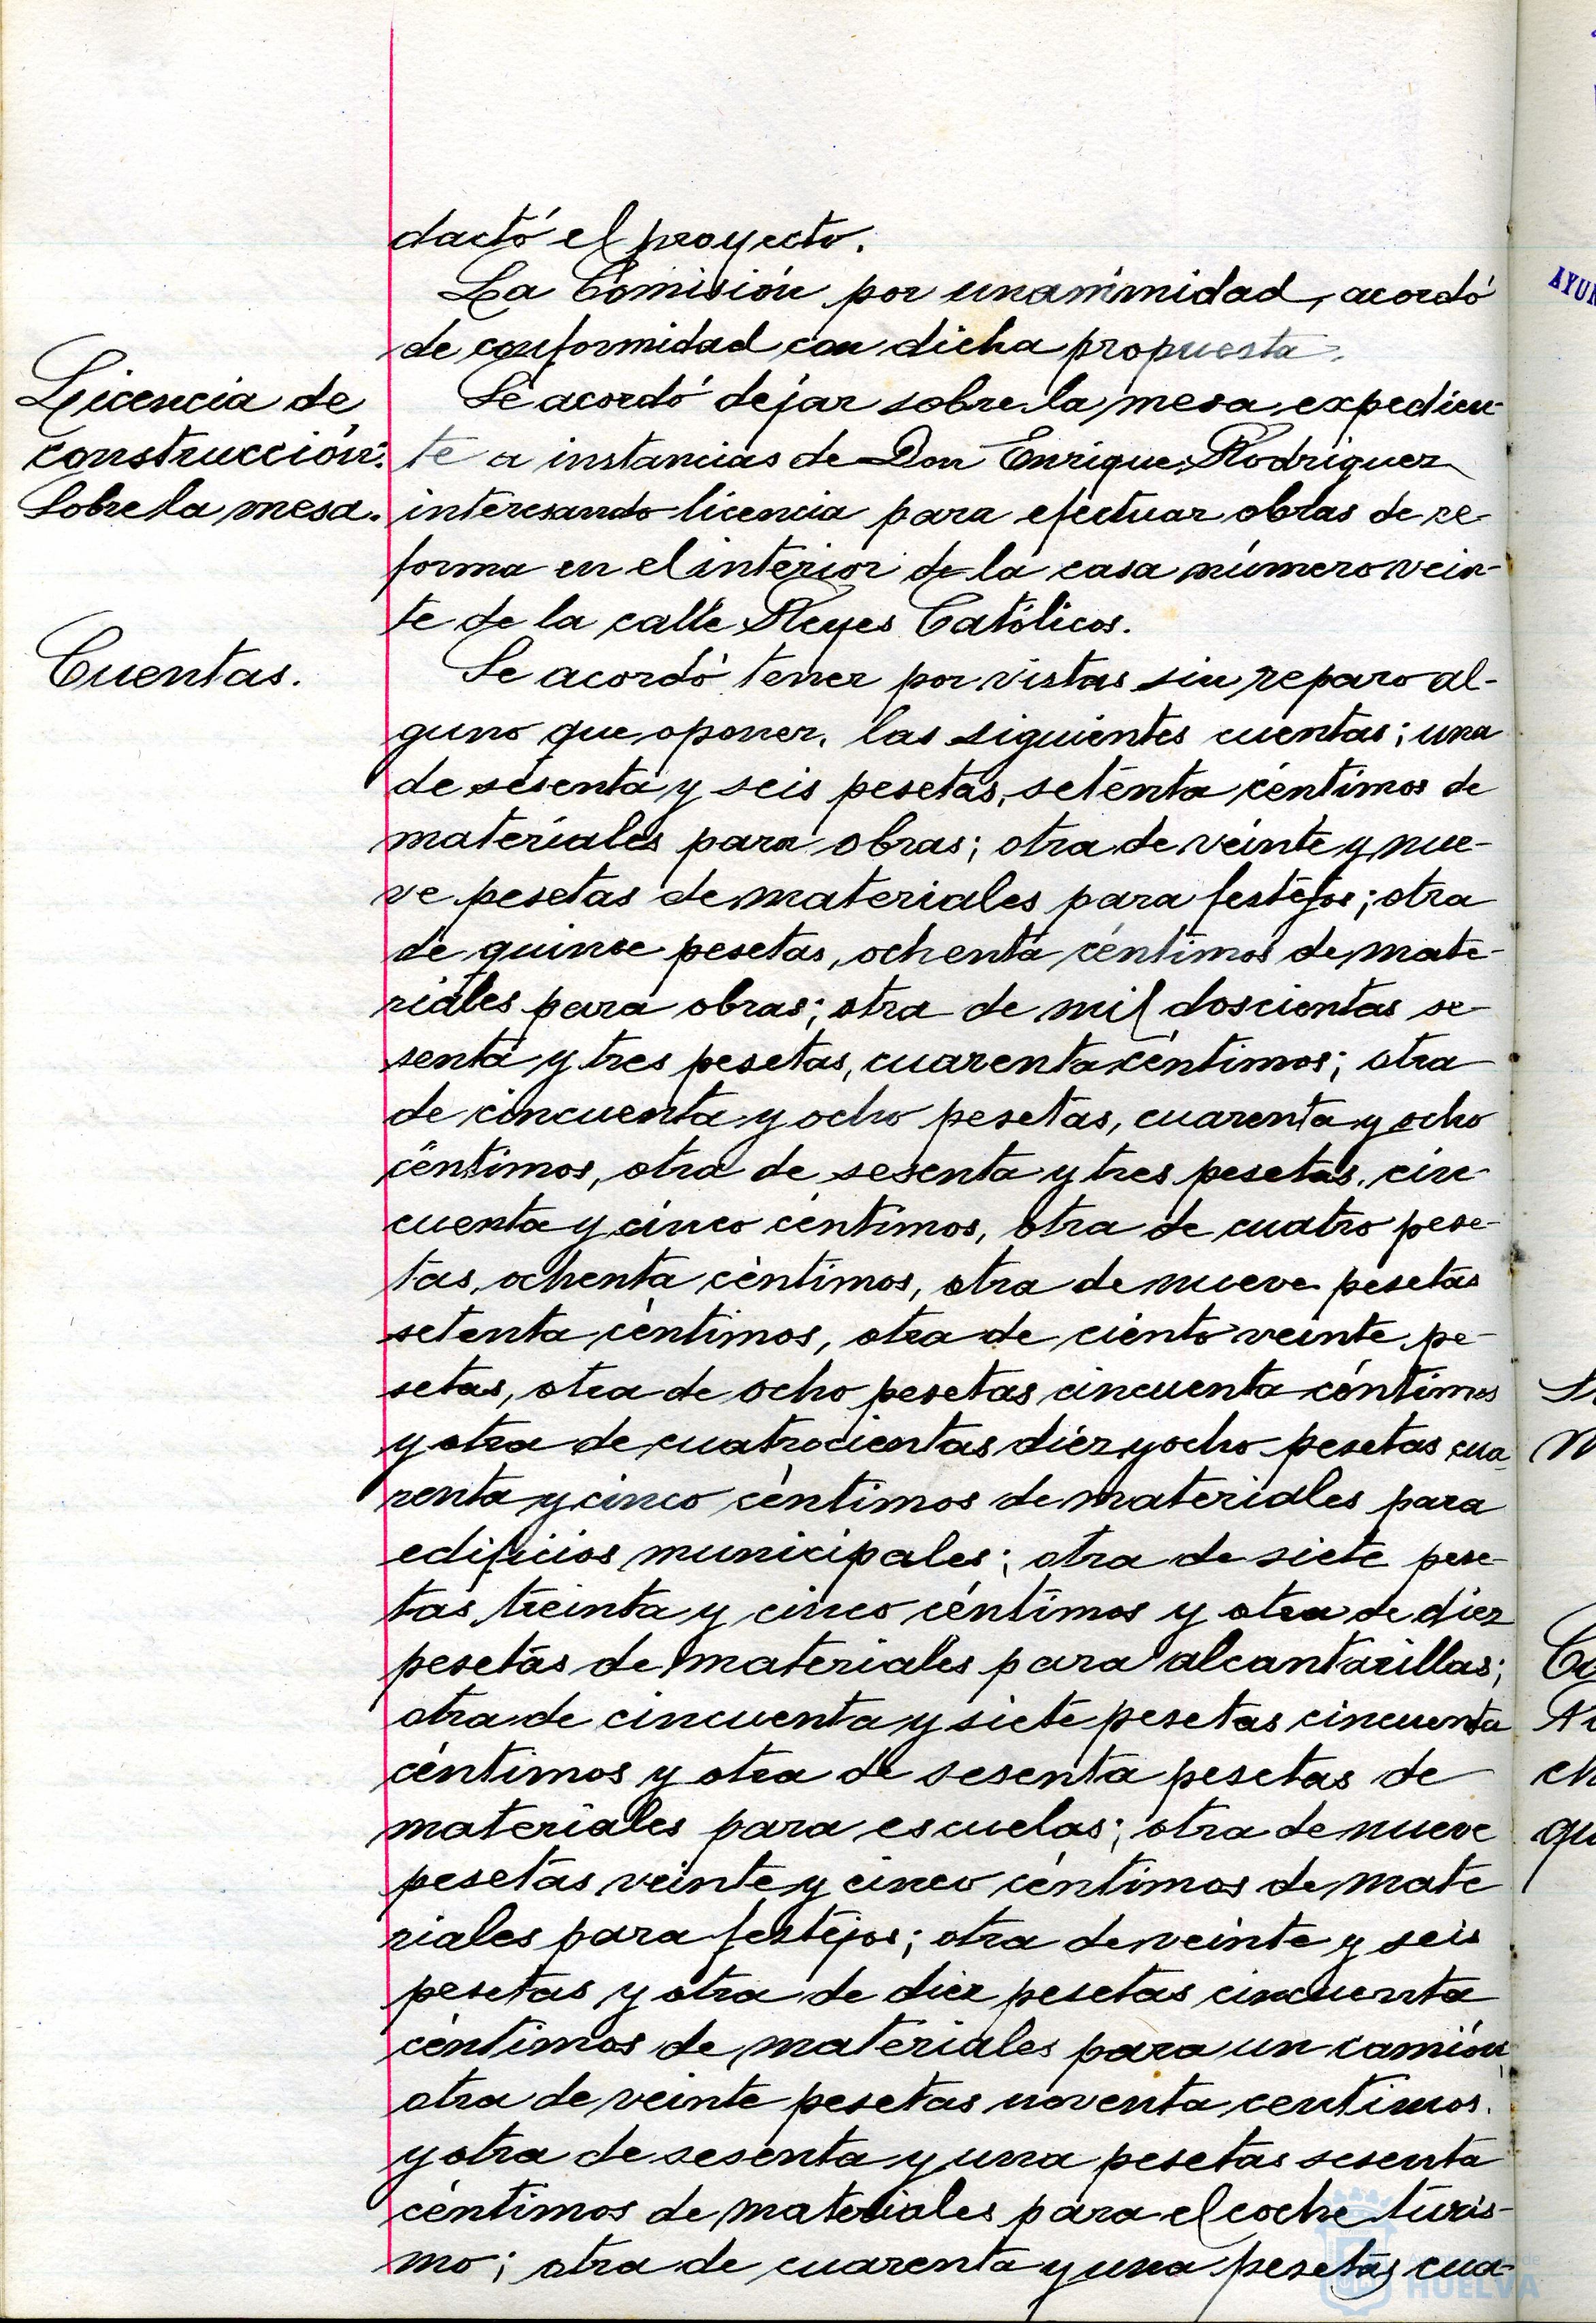 dactó el proyecto.
La Comisión por unanimidad, acordó
de conformidad con dicha propuesta.
Licencia de
construcción.
Sobre la mesa.
Se acordó dejar sobre la mesa expedien-
te a instancias de Don Enrique Rodriguez
interesando licencia para efectuar obras de re-
forma en el interior de la casa número vein-
te de la calle Reyes Católicos.
Cuentas.
Se acordó tener por vistas sin reparo al-
guno que oponer, las siguientes cuentas; una
de sesenta y seis pesetas, setenta céntimos de
materiales para obras; otra de veinte y nue-
ve pesetas de materiales para festejos; otra
de quince pesetas, ochenta céntimos de mate-
riales para obras; otra de mil doscientas se-
senta y tres pesetas, cuarenta céntimos; otra
de cincuenta y ocho pesetas, cuarenta y ocho
céntimos, otra de sesenta y tres pesetas, cin-
cuenta y cinco céntimos, otra de cuatro pese-
tas, ochenta céntimos, otra de nueve pesetas
setenta céntimos, otra de ciento veinte pe-
setas, otra de ocho pesetas cincuenta céntimos
y otra de cuatrocientas diez y ocho pesetas cua-
renta y cinco céntimos de materiales para
edificios municipales; otra de siete pese-
tas, treinta y cinco céntimos y otra de diez
pesetas de materiales para alcantarillas;
otra de cincuenta y siete pesetas cincuenta
céntimos y otra de sesenta pesetas de
materiales para escuelas; otra de nueve
pesetas veinte y cinco céntimos de mate
riales para festejos; otra de veinte y seis
pesetas y otra de diez pesetas cincuenta
céntimos de materiales para un camión;
otra de veinte pesetas noventa centimos.
y otra de sesenta y una pesetas sesenta
céntimos de materiales para el coche turis-
mo; otra de cuarenta y una pesetas cua-
AYUN
HUELVA